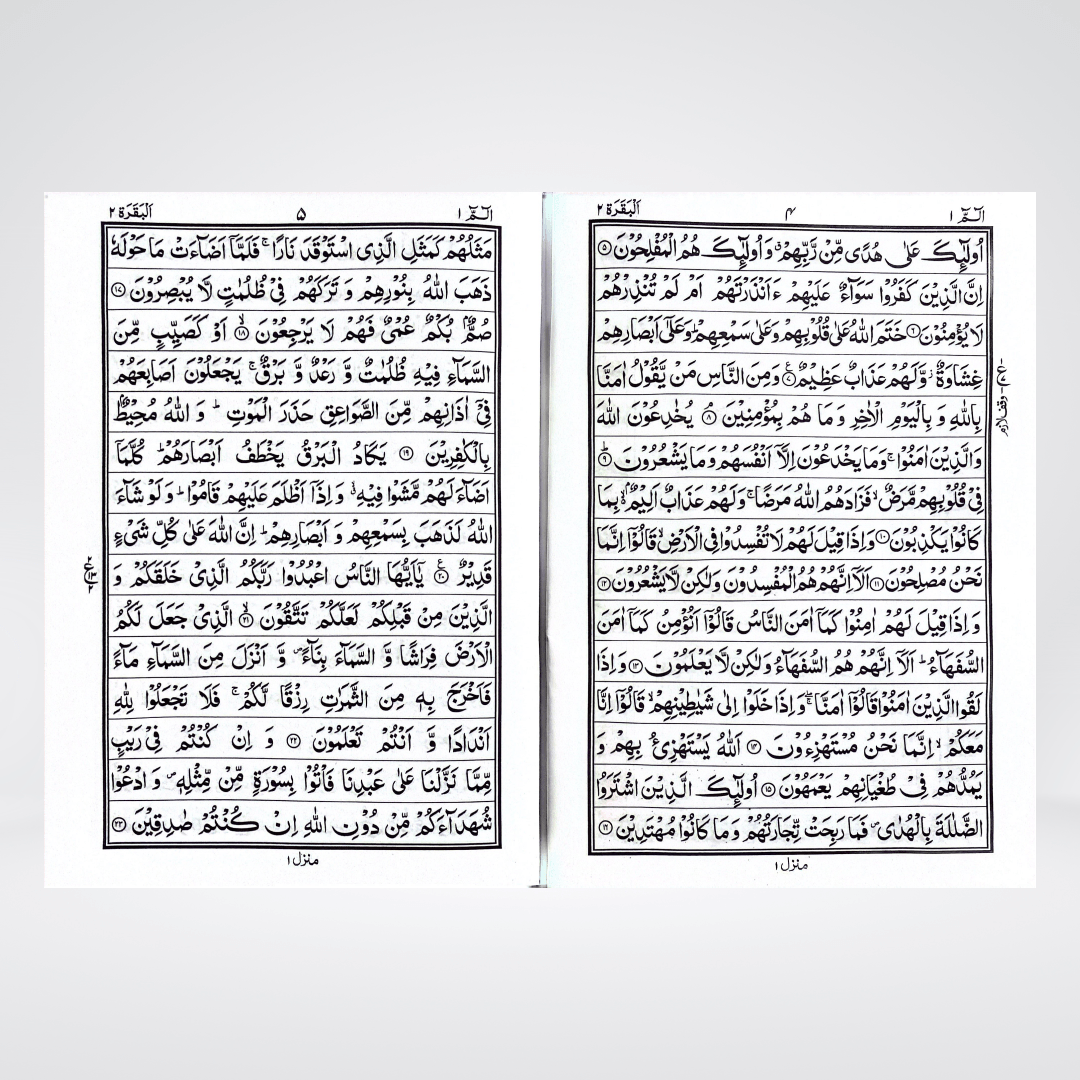 الٓمّٓ ١
۴
اَلْبَقَرَة ٢
اُولٰٓئِكَ عَلٰى هُدًى مِّنْ رَّبِّهِمْ ۗ وَ اُولٰٓئِكَ هُمُ الْمُفْلِحُوْنَ ۝۵
اِنَّ الَّذِيْنَ كَفَرُوْا سَوَآءٌ عَلَيْهِمْ ءَاَنْذَرْتَهُمْ اَمْ لَمْ تُنْذِرْهُمْ
لَا يُؤْمِنُوْنَ ۝۶ خَتَمَ اللّٰهُ عَلٰى قُلُوْبِهِمْ وَعَلٰى سَمْعِهِمْ ؕ وَعَلٰٓى اَبْصَارِهِمْ
غِشَاوَةٌ ؗ وَّلَهُمْ عَذَابٌ عَظِيْمٌ ۝۷ وَمِنَ النَّاسِ مَنْ يَّقُوْلُ اٰمَنَّا
بِاللّٰهِ وَ بِالْيَوْمِ الْاٰخِرِ وَ مَا هُمْ بِمُؤْمِنِيْنَ ۝۸ يُخٰدِعُوْنَ اللّٰهَ
وَالَّذِيْنَ اٰمَنُوْا ۚ وَمَا يَخْدَعُوْنَ اِلَّاۤ اَنْفُسَهُمْ وَمَا يَشْعُرُوْنَ ۝۹ؕ
فِيْ قُلُوْبِهِمْ مَّرَضٌ ۙ فَزَادَهُمُ اللّٰهُ مَرَضًا ۚ وَلَهُمْ عَذَابٌ اَلِيْمٌۢ ۙ بِمَا
كَانُوْا يَكْذِبُوْنَ ۝۱۰ وَاِذَا قِيْلَ لَهُمْ لَا تُفْسِدُوْا فِي الْاَرْضِ ۙ قَالُوْۤا اِنَّمَا
نَحْنُ مُصْلِحُوْنَ ۝۱۱ اَلَاۤ اِنَّهُمْ هُمُ الْمُفْسِدُوْنَ وَلٰكِنْ لَّا يَشْعُرُوْنَ ۝۱۲
وَ اِذَا قِيْلَ لَهُمْ اٰمِنُوْا كَمَاۤ اٰمَنَ النَّاسُ قَالُوْۤا اَنُؤْمِنُ كَمَاۤ اٰمَنَ
السُّفَهَآءُ ؕ اَلَاۤ اِنَّهُمْ هُمُ السُّفَهَآءُ وَلٰكِنْ لَّا يَعْلَمُوْنَ ۝۱۳ وَاِذَا
لَقُوا الَّذِيْنَ اٰمَنُوْا قَالُوْۤا اٰمَنَّا ۖۚ وَاِذَا خَلَوْا اِلٰى شَيٰطِيْنِهِمْ ۙ قَالُوْۤا اِنَّا
مَعَكُمْ ۙ اِنَّمَا نَحْنُ مُسْتَهْزِءُوْنَ ۝۱۴ اَللّٰهُ يَسْتَهْزِئُ بِهِمْ وَ
يَمُدُّهُمْ فِيْ طُغْيَانِهِمْ يَعْمَهُوْنَ ۝۱۵ اُولٰٓئِكَ الَّذِيْنَ اشْتَرَوُا
الضَّلٰلَةَ بِالْهُدٰى ۪ فَمَا رَبِحَتْ تِّجَارَتُهُمْ وَ مَا كَانُوْا مُهْتَدِيْنَ ۝۱۶
ع وقف لازم
منزل ١
الٓمّٓ ١
۵
اَلْبَقَرَة ٢
مَثَلُهُمْ كَمَثَلِ الَّذِى اسْتَوْقَدَ نَارًا ۚ فَلَمَّاۤ اَضَآءَتْ مَا حَوْلَهٗ
ذَهَبَ اللّٰهُ بِنُوْرِهِمْ وَ تَرَكَهُمْ فِيْ ظُلُمٰتٍ لَّا يُبْصِرُوْنَ ۝۱۷
صُمٌّۢ بُكْمٌ عُمْيٌ فَهُمْ لَا يَرْجِعُوْنَ ۝۱۸ۙ اَوْ كَصَيِّبٍ مِّنَ
السَّمَآءِ فِيْهِ ظُلُمٰتٌ وَّ رَعْدٌ وَّ بَرْقٌ ۚ يَجْعَلُوْنَ اَصَابِعَهُمْ
فِيْۤ اٰذَانِهِمْ مِّنَ الصَّوَاعِقِ حَذَرَ الْمَوْتِ ؕ وَ اللّٰهُ مُحِيْطٌۢ
بِالْكٰفِرِيْنَ ۝۱۹ يَكَادُ الْبَرْقُ يَخْطَفُ اَبْصَارَهُمْ ؕ كُلَّمَاۤ
اَضَآءَ لَهُمْ مَّشَوْا فِيْهِ ۙۗ وَ اِذَاۤ اَظْلَمَ عَلَيْهِمْ قَامُوْا ؕ وَ لَوْ شَآءَ
اللّٰهُ لَذَهَبَ بِسَمْعِهِمْ وَ اَبْصَارِهِمْ ؕ اِنَّ اللّٰهَ عَلٰى كُلِّ شَيْءٍ
قَدِيْرٌ ۝۲۰ يٰۤاَيُّهَا النَّاسُ اعْبُدُوْا رَبَّكُمُ الَّذِيْ خَلَقَكُمْ وَ
الَّذِيْنَ مِنْ قَبْلِكُمْ لَعَلَّكُمْ تَتَّقُوْنَ ۝۲۱ۙ الَّذِيْ جَعَلَ لَكُمُ
الْاَرْضَ فِرَاشًا وَّ السَّمَآءَ بِنَآءً ۪ وَّ اَنْزَلَ مِنَ السَّمَآءِ مَآءً
فَاَخْرَجَ بِهٖ مِنَ الثَّمَرٰتِ رِزْقًا لَّكُمْ ۚ فَلَا تَجْعَلُوْا لِلّٰهِ
اَنْدَادًا وَّ اَنْتُمْ تَعْلَمُوْنَ ۝۲۲ وَ اِنْ كُنْتُمْ فِيْ رَيْبٍ
مِّمَّا نَزَّلْنَا عَلٰى عَبْدِنَا فَاْتُوْا بِسُوْرَةٍ مِّنْ مِّثْلِهٖ ۪ وَ ادْعُوْا
شُهَدَآءَكُمْ مِّنْ دُوْنِ اللّٰهِ اِنْ كُنْتُمْ صٰدِقِيْنَ ۝۲۳
٢ ع ١٣ ٢
منزل ١